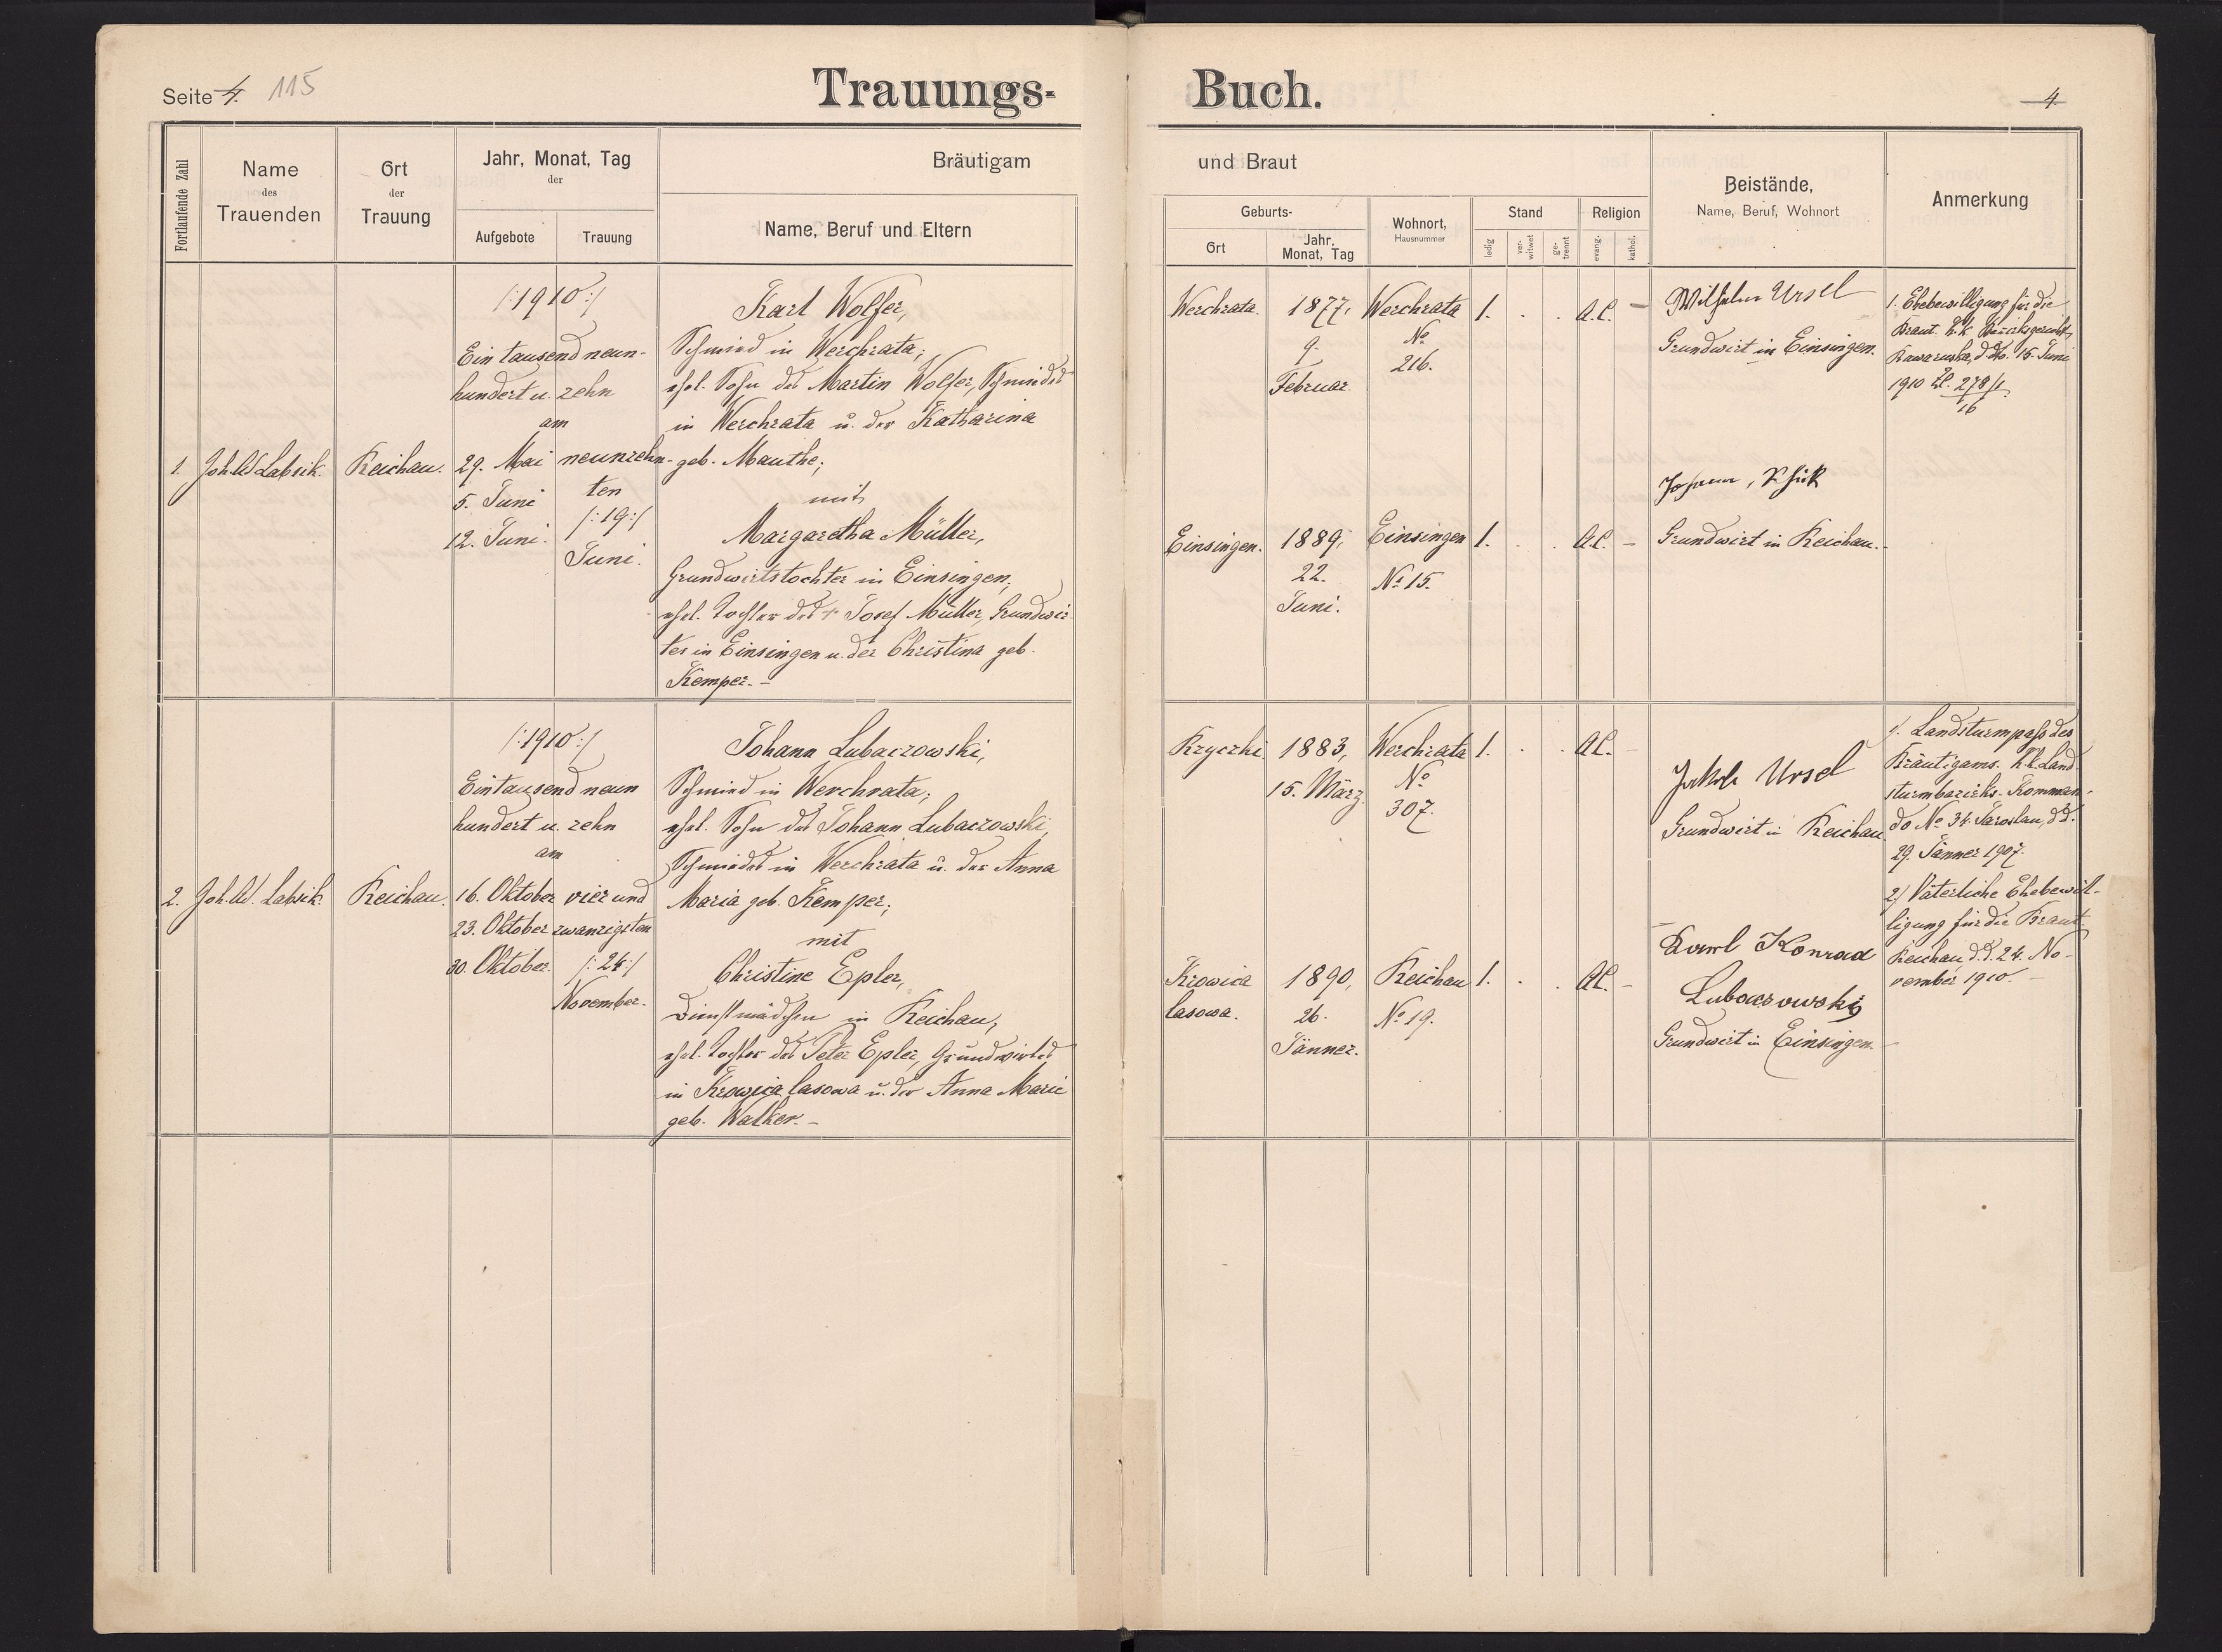 Seite 4. 115
Trauungs-
Buch.
4.
Fortlaufende Zahl
Name
des
Trauenden
Ort
der
Trauung
Jahr, Monat, Tag
der
Aufgebote
Trauung
Bräutigam
Name, Beruf und Eltern
und Braut
Geburts-
Ort
Jahr,
Monat, Tag
Wohnort,
Hausnummer
Stand
ledig
ver-
witwet
ge-
trennt
Religion
evang.
kathol.
Beistände,
Name, Beruf, Wohnort
Anmerkung
1.
Joh. Ad. Labsik.
Reichau.
/:1910:/
Ein tausend neun-
hundert u. zehn
am
29. Mai
5. Juni
12. Juni.
neunzehn-
ten
/:19:/
Juni.
Karl Wolfer,
Schmied in Werchrata;
ehel. Sohn des Martin Wolfer, Schmiedes
in Werchrata u. der Katharina
geb. Mauthe;
mit
Margaretha Müller,
Grundwirtstochter in Einsingen;
ehel. Tochter des + Josef Müller, Grundwir-
tes in Einsingen u. der Christina geb.
Kemper. -
Werchrata.
1877,
9.
Februar.
Werchrata
No
216.
l. . .
A.C. -
Wilhelm Ursel
Grundwirt in Einsingen.
1. Ehebewilligung für die
Braut. k.k. Bezirksgericht,
Rawaruska, d.dto. 15. Juni
1910 Zl. 278/1
16
Einsingen.
1889,
22.
Juni.
Einsingen
No 15.
l. . .
A.C. -
Grundwirt in Reichau. -
2.
Joh. Ad. Labsik.
Reichau.
/:1910:/
Ein tausend neun
hundert u. zehn
am
16. Oktober
23. Oktober
30. Oktober.
vier und
zwanzigsten
/:24:/
November.
Johann Lubaczowski,
Schmied in Werchrata;
ehel. Sohn des Johann Lubaczowski,
Schmiedes in Werchrata u. der Anna
Maria geb. Kemper;
mit
Christine Epler,
Dienstmädchen in Reichau,
ehel. Tochter des Peter Epler, Grundwirtes
in Krowica lasowa u. der Anna Marie
geb. Walker. -
Krzyczki
1883,
15. März
Werchrata
No
307.
l. . .
A.C. -
Jakob Ursel
Grundwirt in Reichau.
1. Landsturmpaß des
Bräutigams. k.k. Land-
sturmbezirks-Komman-
do No 34. Jaroslau, d.d.
29. Jänner 1907.
2/ Väterliche Ehebewil-
ligung für die Braut.
Reichau d.d. 24. No-
vember 1910. -
Krowica
lasowa.
1890,
26.
Jänner.
Reichau
No 19.
l. . .
A.C. -
Karl Konrad
Lubaczowski
Grundwirt in Einsingen. -